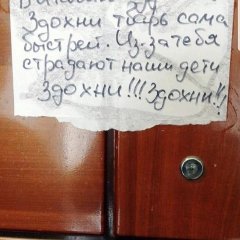 Здохни тварь сама
быстрей. Из-за тебя
страдают наши дети
Здохни!!! Здохни!!